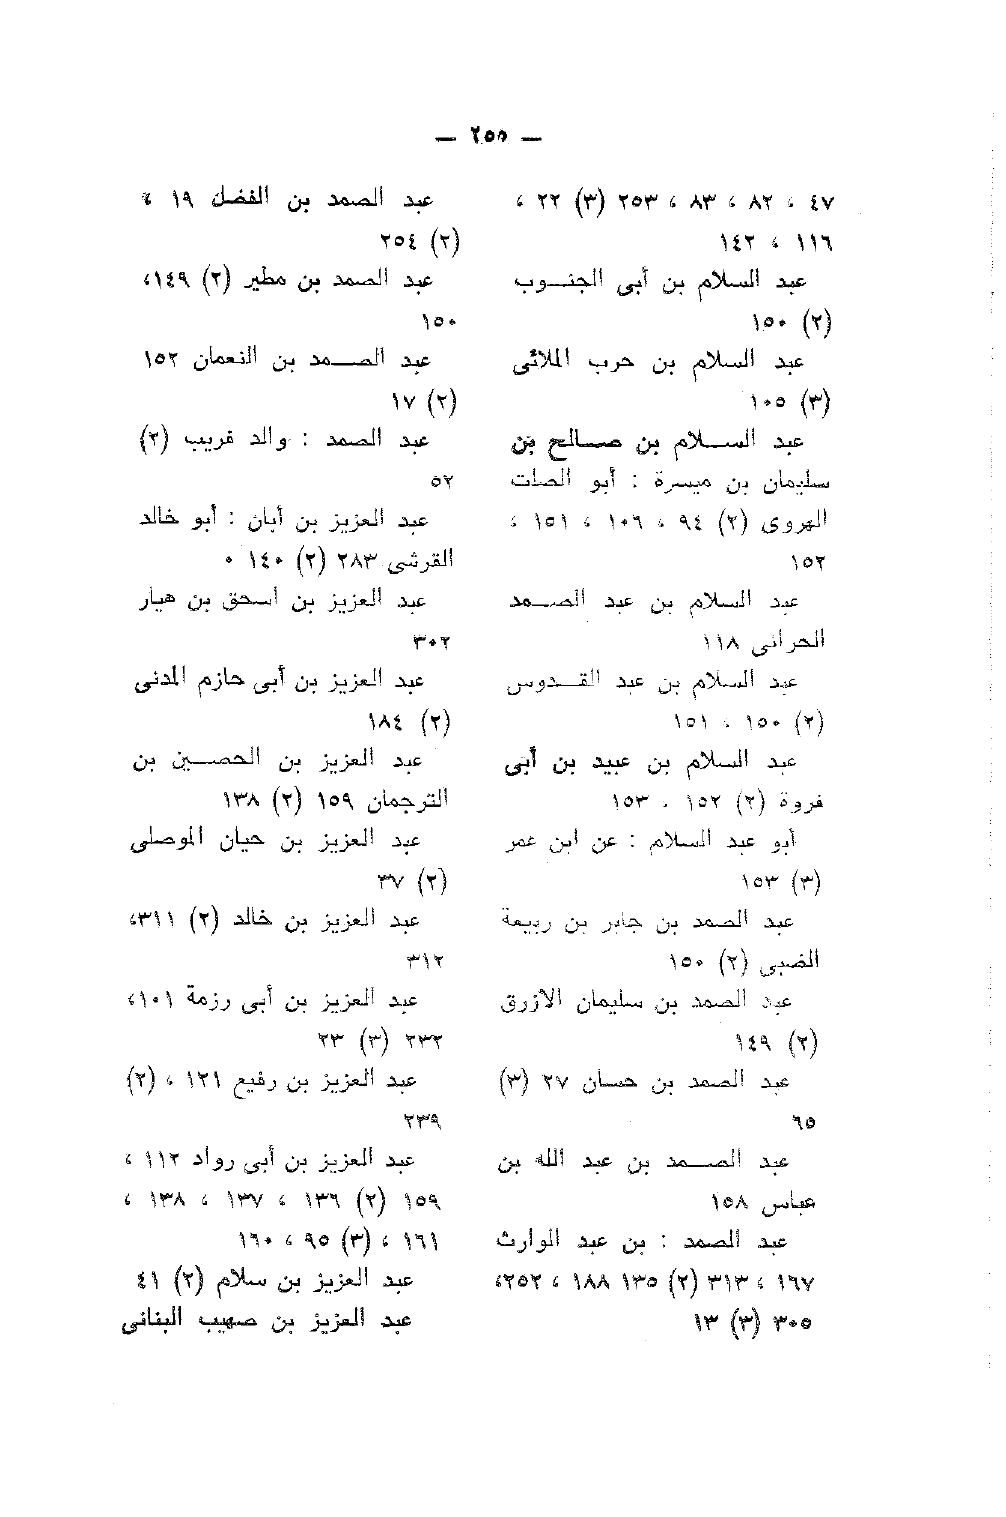 — ٢٥٥ —
٤٧ ، ٨٢ ، ٨٣ ، ٢٥٣ (٣) ٢٢ ،
١١٦ ، ١٤٢
عبد السلام بن أبى الجنـــوب
(٢) ١٥٠
عبد السلام بن حرب الملائى
(٣) ١٠٥
عبد الســـلام بن صـــالح بن
سليمان بن ميسرة : أبو الصلت
الهروى (٢) ٩٤ ، ١٠٦ ، ١٥١ ،
١٥٢
عبد السلام بن عبد الصـــمد
الحرانى ١١٨
عبد السلام بن عبد القـــدوس
(٢) ١٥٠ ، ١٥١
عبد السلام بن عبيد بن أبى
فروة (٢) ١٥٢ ، ١٥٣
أبو عبد السلام : عن ابن عمر
(٣) ١٥٣
عبد الصمد بن جابر بن ربيعة
الضبى (٢) ١٥٠
عبد الصمد بن سليمان الازرق
(٢) ١٤٩
عبد الصمد بن حسان ٢٧ (٣)
٦٥
عبد الصـــمد بن عبد الله بن
عباس ١٥٨
عبد الصمد : بن عبد الوارث
١٦٧ ، ٣١٣ (٢) ١٣٥ ١٨٨ ، ٢٥٢،
٣٠٥ (٣) ١٣
عبد الصمد بن الفضل ١٩ ،
(٢) ٢٥٤
عبد الصمد بن مطير (٢) ١٤٩،
١٥٠
عبد الصـــمد بن النعمان ١٥٢
(٢) ١٧
عبد الصمد : والد قريب (٢)
٥٢
عبد العزيز بن أبان : أبو خالد
القرشى ٢٨٣ (٢) ١٤٠ ٠
عبد العزيز بن اسحق بن هيار
٣٠٢
عبد العزيز بن أبى حازم المدنى
(٢) ١٨٤
عبد العزيز بن الحصـــين بن
الترجمان ١٥٩ (٢) ١٣٨
عبد العزيز بن حيان الموصلى
(٢) ٣٧
عبد العزيز بن خالد (٢) ٣١١،
٣١٢
عبد العزيز بن أبى رزمة ١٠١،
٢٣٢ (٣) ٢٣
عبد العزيز بن رفيع ١٢١ ، (٢)
٢٣٩
عبد العزيز بن أبى رواد ١١٢ ،
١٥٩ (٢) ١٣٦ ، ١٣٧ ، ١٣٨ ،
١٦١ ، (٣) ٩٥ ، ١٦٠
عبد العزيز بن سلام (٢) ٤١
عبد العزيز بن صهيب البنانى